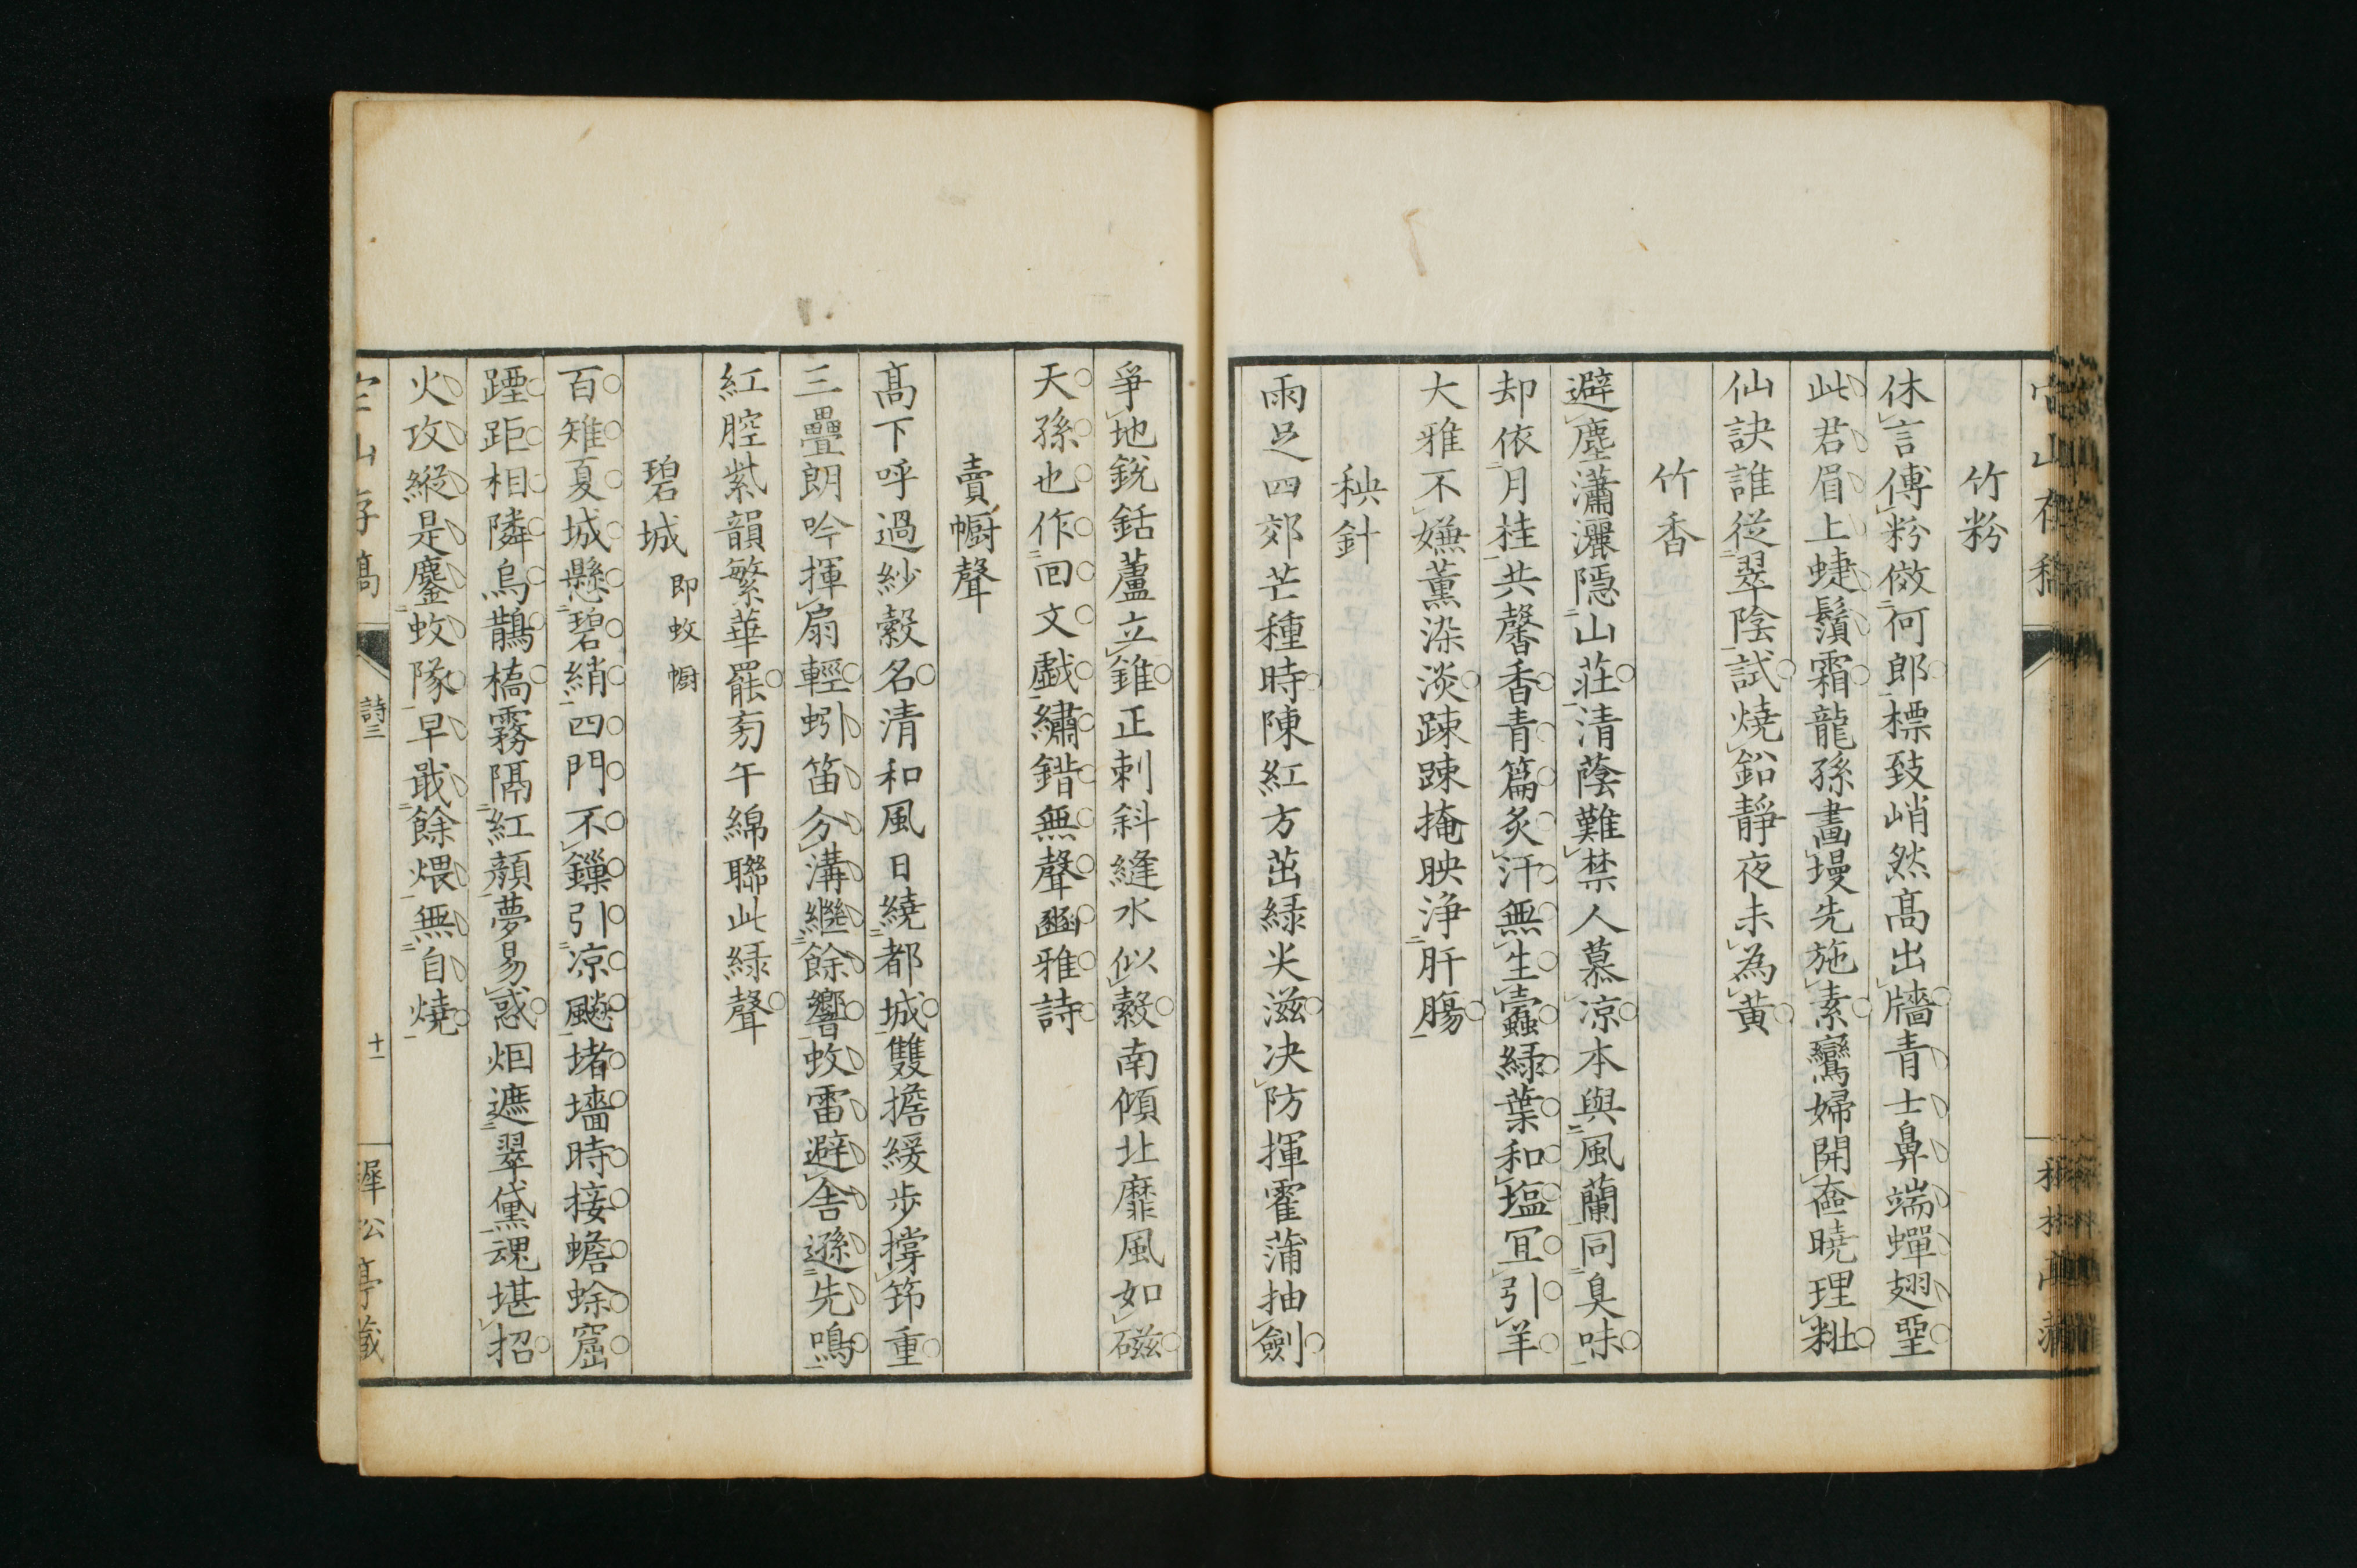 竹粉
休言傅粉傚何郎標致峭然高出牆青士鼻端蟬翅堊
此君眉上蜨鬚霜龍孫畵墁先施素鸞婦開奩曉理粧
仙訣誰從翠陰試燒鉛靜夜未為黃
竹香
避塵瀟灑隠山莊清蔭難禁人慕凉本與風蘭同臭味
却依月桂共馨香青篇炙汗無生蠹緑葉和塩冝引羊
大雅不嫌薫染淡踈踈掩映浄肝膓
秧針
雨足四郊芒種時陳紅方茁緑尖滋决防揮霍蒲抽劍
爭地銳銛蘆立錐正刺斜縫水似縠南傾北靡風如磁
天孫也作回文戯繡錯無聲豳雅詩
賣㡡聲
高下呼過紗縠名清和風日繞都城雙擔緩歩撐筇重
三疊朗吟揮扇輕蚓笛分溝繼餘響蚊雷避舎遜先鳴
紅腔紫韻繁華罷旁午綿聯此緑聲
碧城 即蚊㡡
百雉夏城懸碧綃四門不鏁引凉颷堵墻時接蟾蜍窟
距相隣烏鵲橋霧隔紅顔夢易惑烟遮翠黛魂堪招
火攻縱是鏖蚊隊早戢餘煨無自燒
山存稿 詩二 十一 犀松亭藏